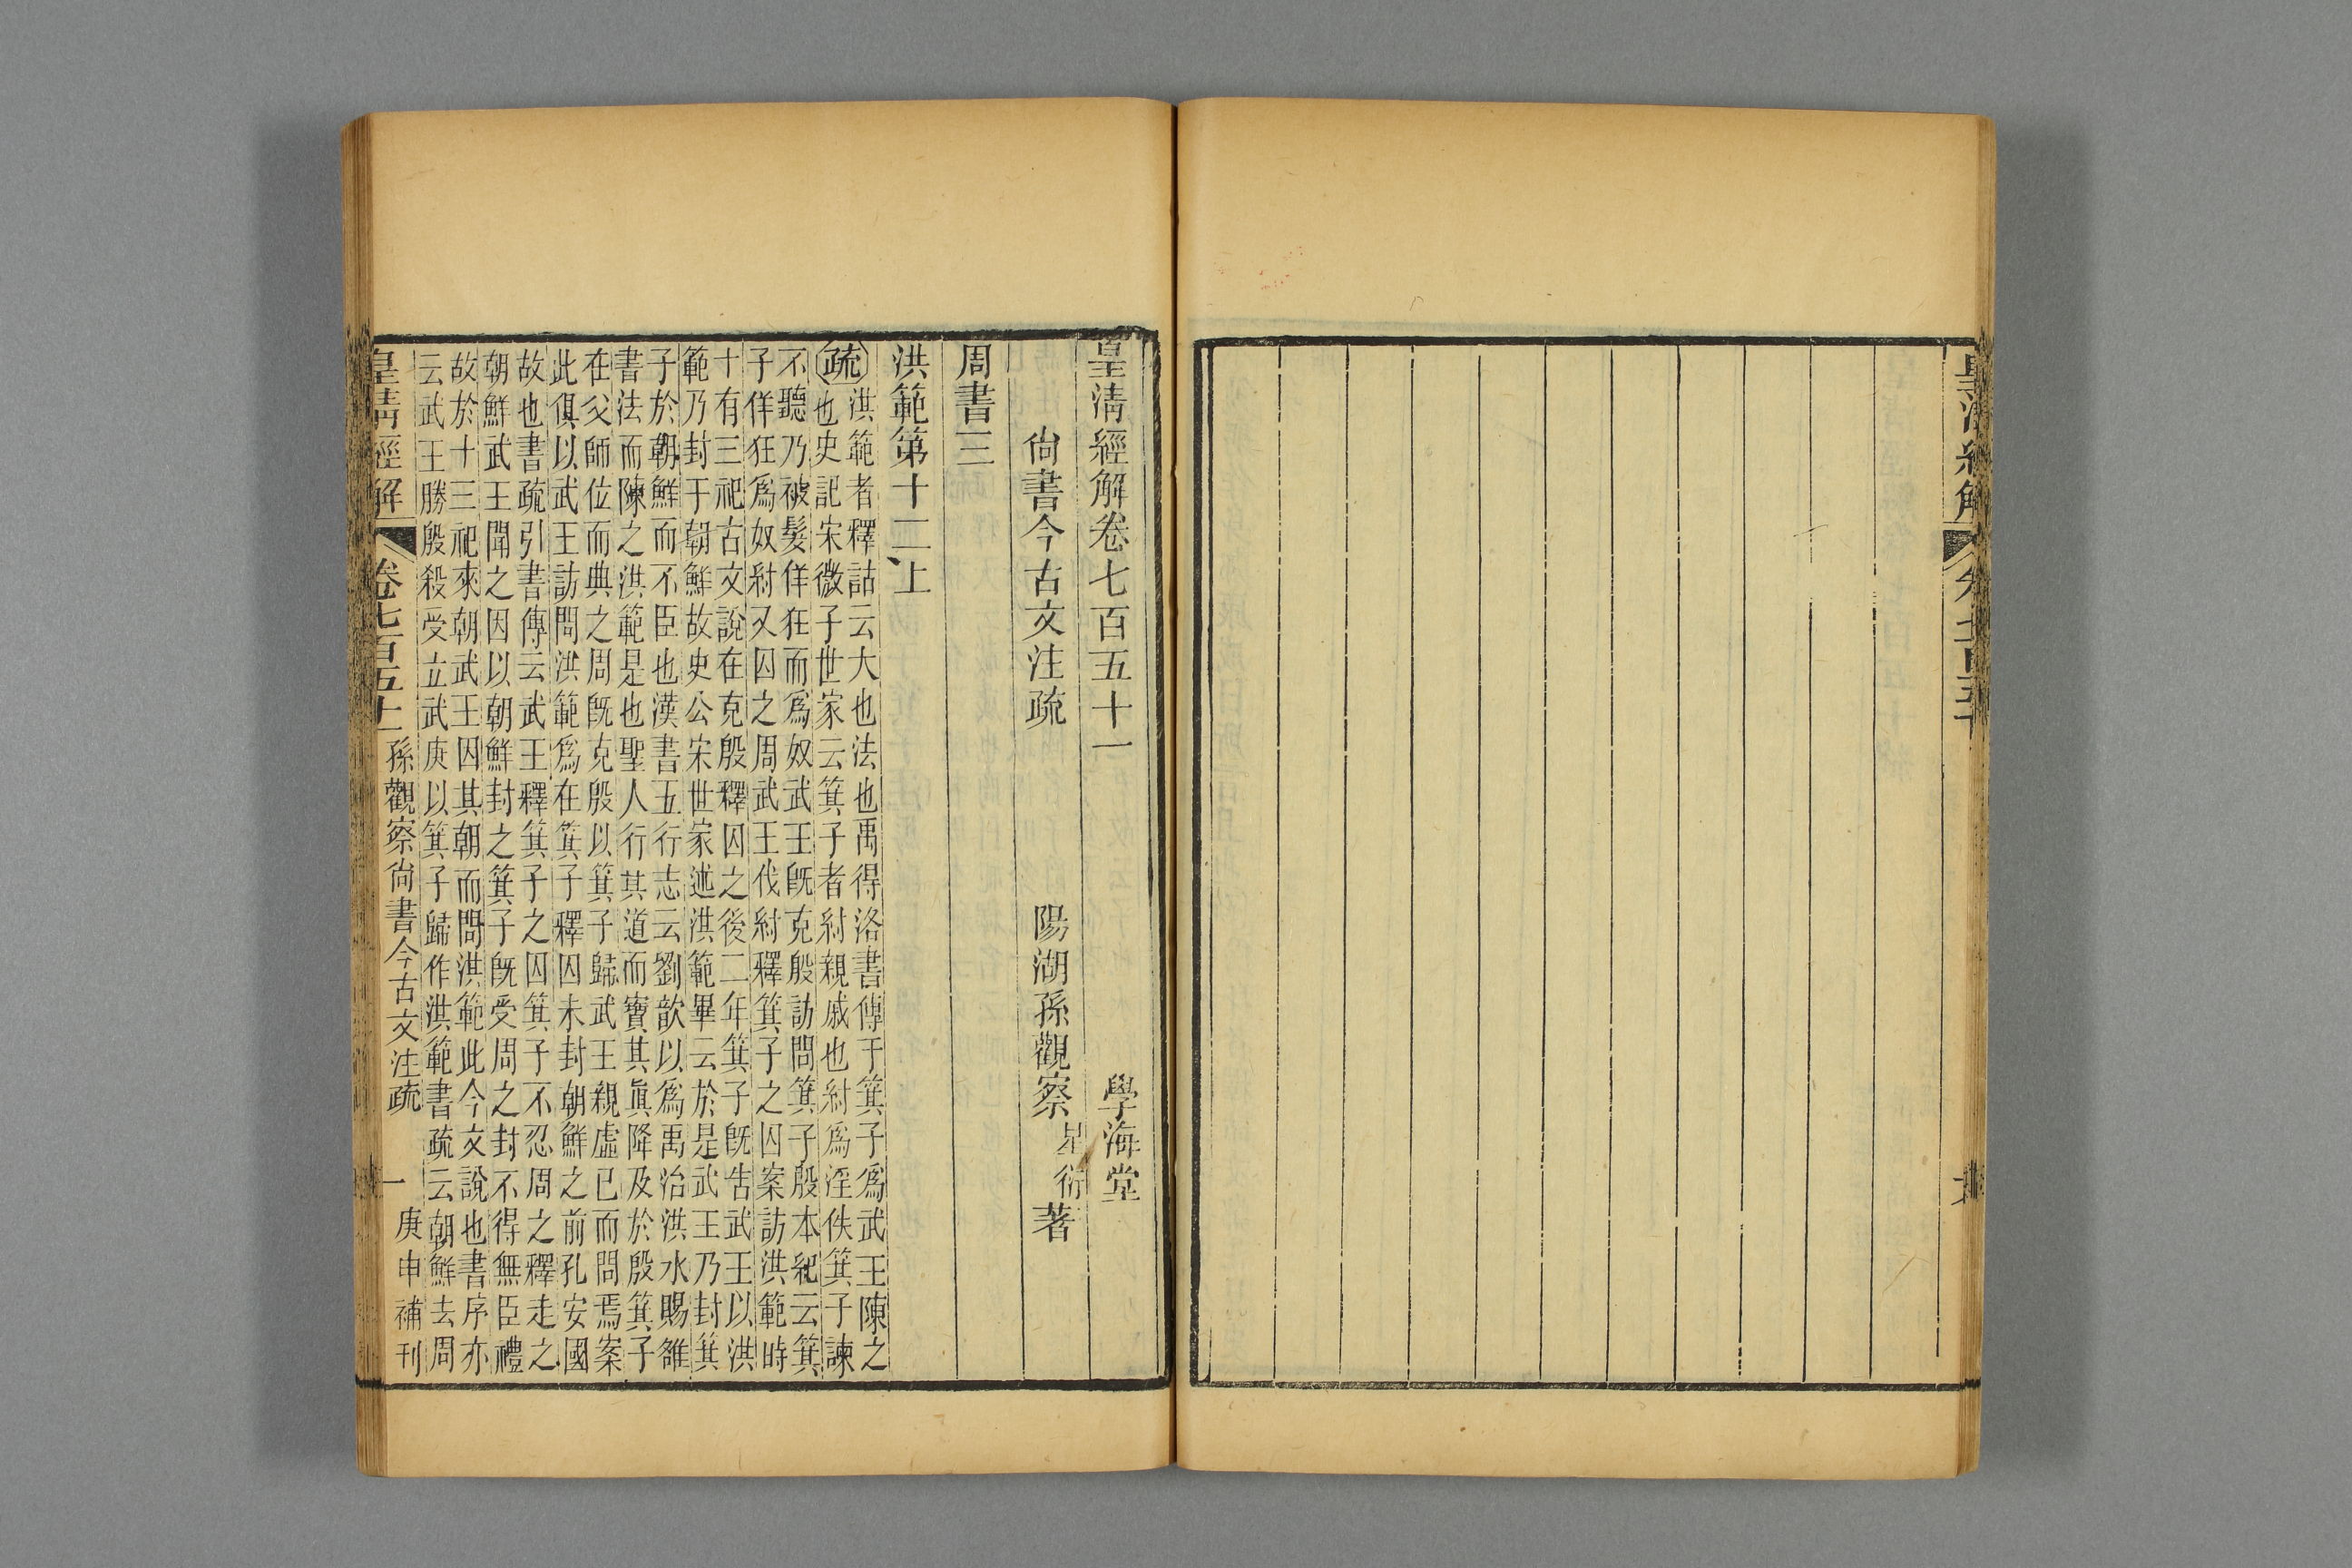 皇清經解
皇清經解卷七百五十一
學海堂
尙書今古文注疏
陽湖孫觀察星衍著
周書三
洪範第十二上
疏洪範者釋詁云大也法也禹得洛書傳于箕子爲武王陳之
也史記宋微子世家云箕子者紂親戚也紂爲淫佚箕子諫
不聽乃被髮佯狂而爲奴武王旣克殷訪問箕子殷本紀云箕
子佯狂爲奴紂又囚之周武王伐紂釋箕子之囚案訪洪範時
十有三祀古文說在克殷釋囚之後二年箕子旣告武王以洪
範乃封于朝鮮故史公宋世家述洪範畢云於是武王乃封箕
子於朝鮮而不臣也漢書五行志云劉歆以爲禹治洪水賜雒
書法而陳之洪範是也聖人行其道而寶其眞降及於殷箕子
在父師位而典之周旣克殷以箕子歸武王親虛已而問焉案
此俱以武王訪問洪範爲在箕子釋囚未封朝鮮之前孔安國
故也書疏引書傳云武王釋箕子之囚箕子不忍周之釋走之
朝鮮武王聞之因以朝鮮封之箕子旣受周之封不得無臣禮
故於十三祀來朝武王因其朝而問洪範此今文說也書序亦
云武王勝殷殺受立武庚以箕子歸作洪範書疏云朝鮮去周
皇清經解
卷七百五十一
孫觀察尙書今古文注疏
一
庚申補刊